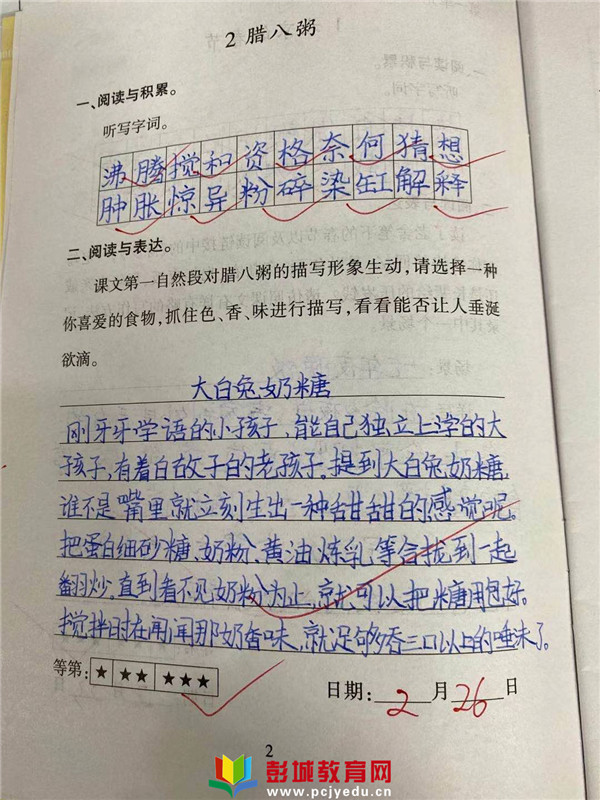 2 腊八粥
一、阅读与积累。
听写字词。
沸腾搅和资格奈何猜想
肿胀惊异粉碎染缸解释
二、阅读与表达。
课文第一自然段对腊八粥的描写形象生动,请选择一种
你喜爱的食物,抓住色、香、味进行描写,看看能否让人垂涎
欲滴。
大白兔奶糖
刚牙牙学语的小孩子,能自己独立上学的大
孩子,有着白发的老孩子。提到大白兔奶糖,
谁不是嘴里就立刻生出一种甜甜的感觉呢。
把蛋白细砂糖、奶粉、黄油炼乳等合拢到一起
翻炒,直到看不见奶粉为止,就可以把糖用包好。
搅拌时在闻闻那奶香味,就足够吞三口以上的唾沫了。
等第: ★ ★★ ★★★
日期: 2 月 26 日
2
彭城教育网
www.pcjyedu.cn